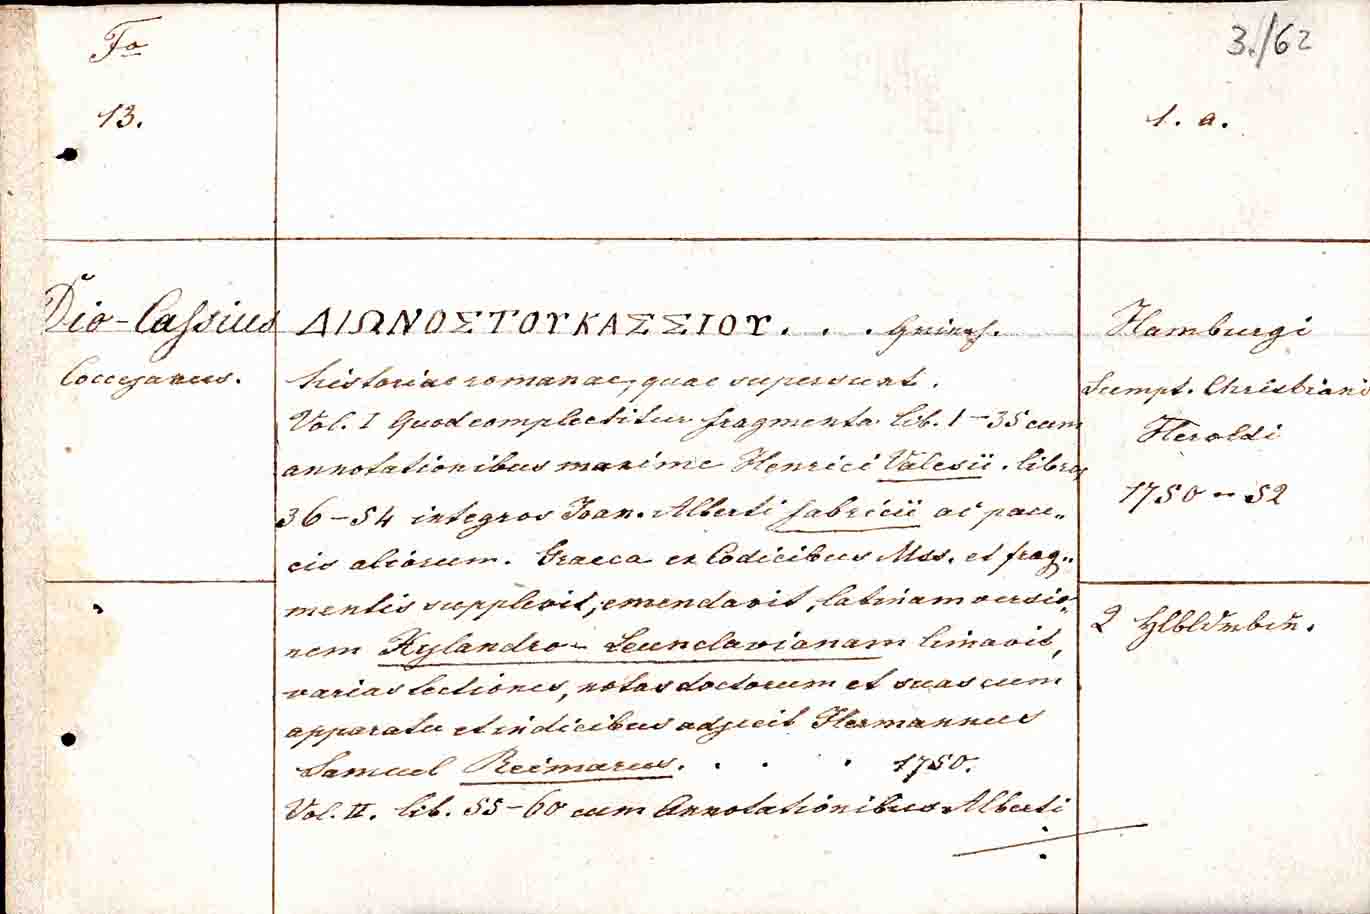 Fo
13.
3./62
1. a.
Dio-Cassius
Coccejanus.
ΔΙΩΝΟΣ ΤΟΥ ΚΑΣΣΙΟΥ. . .
historiae romanae, quae supersunt.
Vol. I Quod complectitur fragmenta lib. 1-35 cum
annotationibus maxime Henrici Valesii. libros
36-54 integros Joan. Alberti Fabricii ac pau„
cis aliorum. Graeca ex Codicibus Mss. et frag„
mentis supplevit, emendavit, latinam versio„
nem Xylandro-Leunclavianam limavit,
varias lectiones, notas doctorum et suas cum
apparatu et indicibus adjecit Hermannus
Samuel Reimarus. . . . 1750.
Vol. II. lib. 55-60 cum Annotationibus Alberti
Hamburgi
Sumpt. Christiani
Heroldi
1750-52
2 Hlbldrbde.